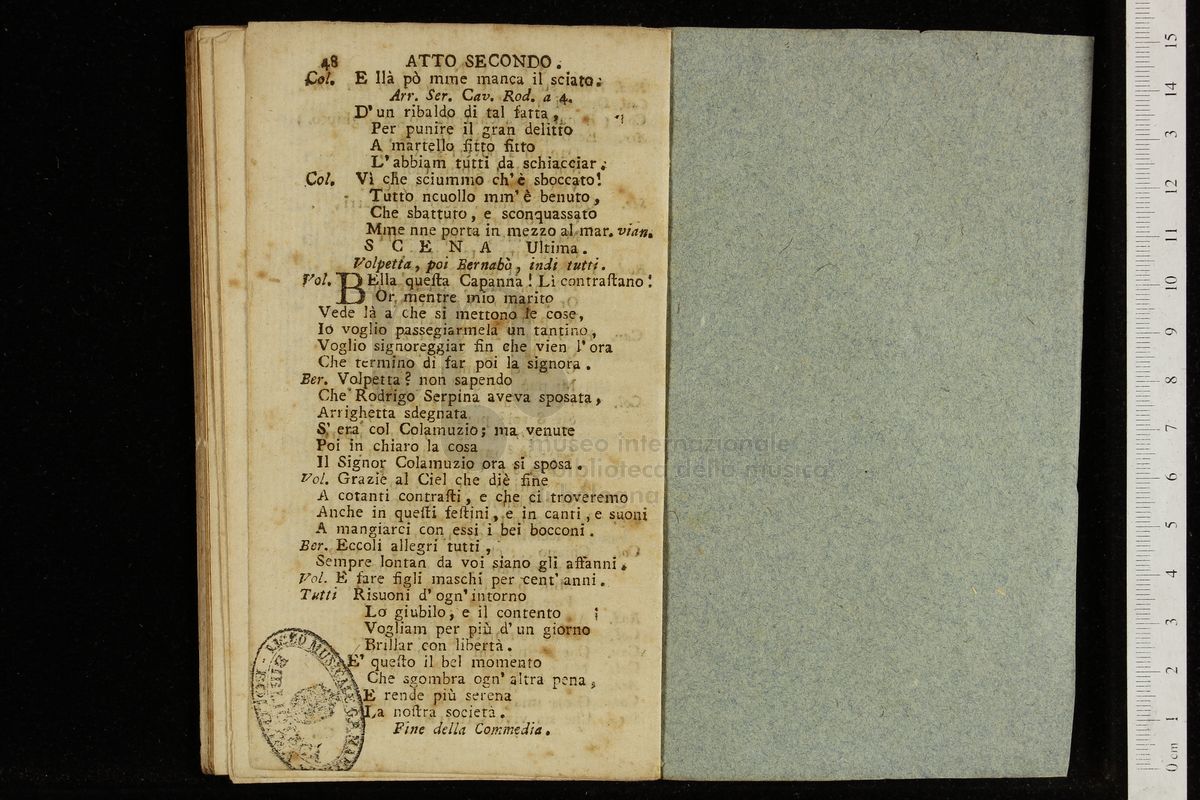 48 ATTO SECONDO.
Col. E llà pò mme manca il sciato.
Arr. Ser. Cav. Rod. a 4.
D'un ribaldo di tal fatta,
Per punire il gran delitto
A martello fitto fitto
L'abbiam tutti da schiacciar.
Col. Vì che sciummo ch'è sboccato!
Tutto ncuollo mm'è benuto,
Che sbattuto, e sconquassato
Mme nne porta in mezzo al mar. vian.
SCENA Ultima.
Volpetta, poi Bernabò, indi tutti.
Vol. BElla questa Capanna! Lì contrastano!
Or mentre mio marito
Vede là a che si mettono le cose,
Io voglio passegiarmela un tantino,
Voglio signoreggiar fin che vien l'ora
Che termino di far poi la signora.
Ber. Volpetta? non sapendo
Che Rodrigo Serpina aveva sposata,
Arrighetta sdegnata
S'era col Colamuzio; ma venute
Poi in chiaro la cosa
Il Signor Colamuzio ora si sposa.
Vol. Grazie al Ciel che diè fine
A cotanti contrasti, e che ci troveremo
Anche in questi festini, e in canti, e suoni
A mangiarci con essi i bei bocconi.
Ber. Eccoli allegri tutti,
Sempre lontan da voi siano gli affanni.
Vol. E fare figli maschi per cent'anni.
Tutti Risuoni d'ogn'intorno
Lo giubilo, e il contento;
Vogliam per più d'un giorno
Brillar con libertà.
E' questo il bel momento
Che sgombra ogn'altra pena,
E rende più serena
La nostra società.
Fine della Commedia.
museo internazionale
biblioteca della musica
LICEO MUSICALE
0 cm 1 2 3 4 5 6 7 8 9 10 11 12 13 14 15